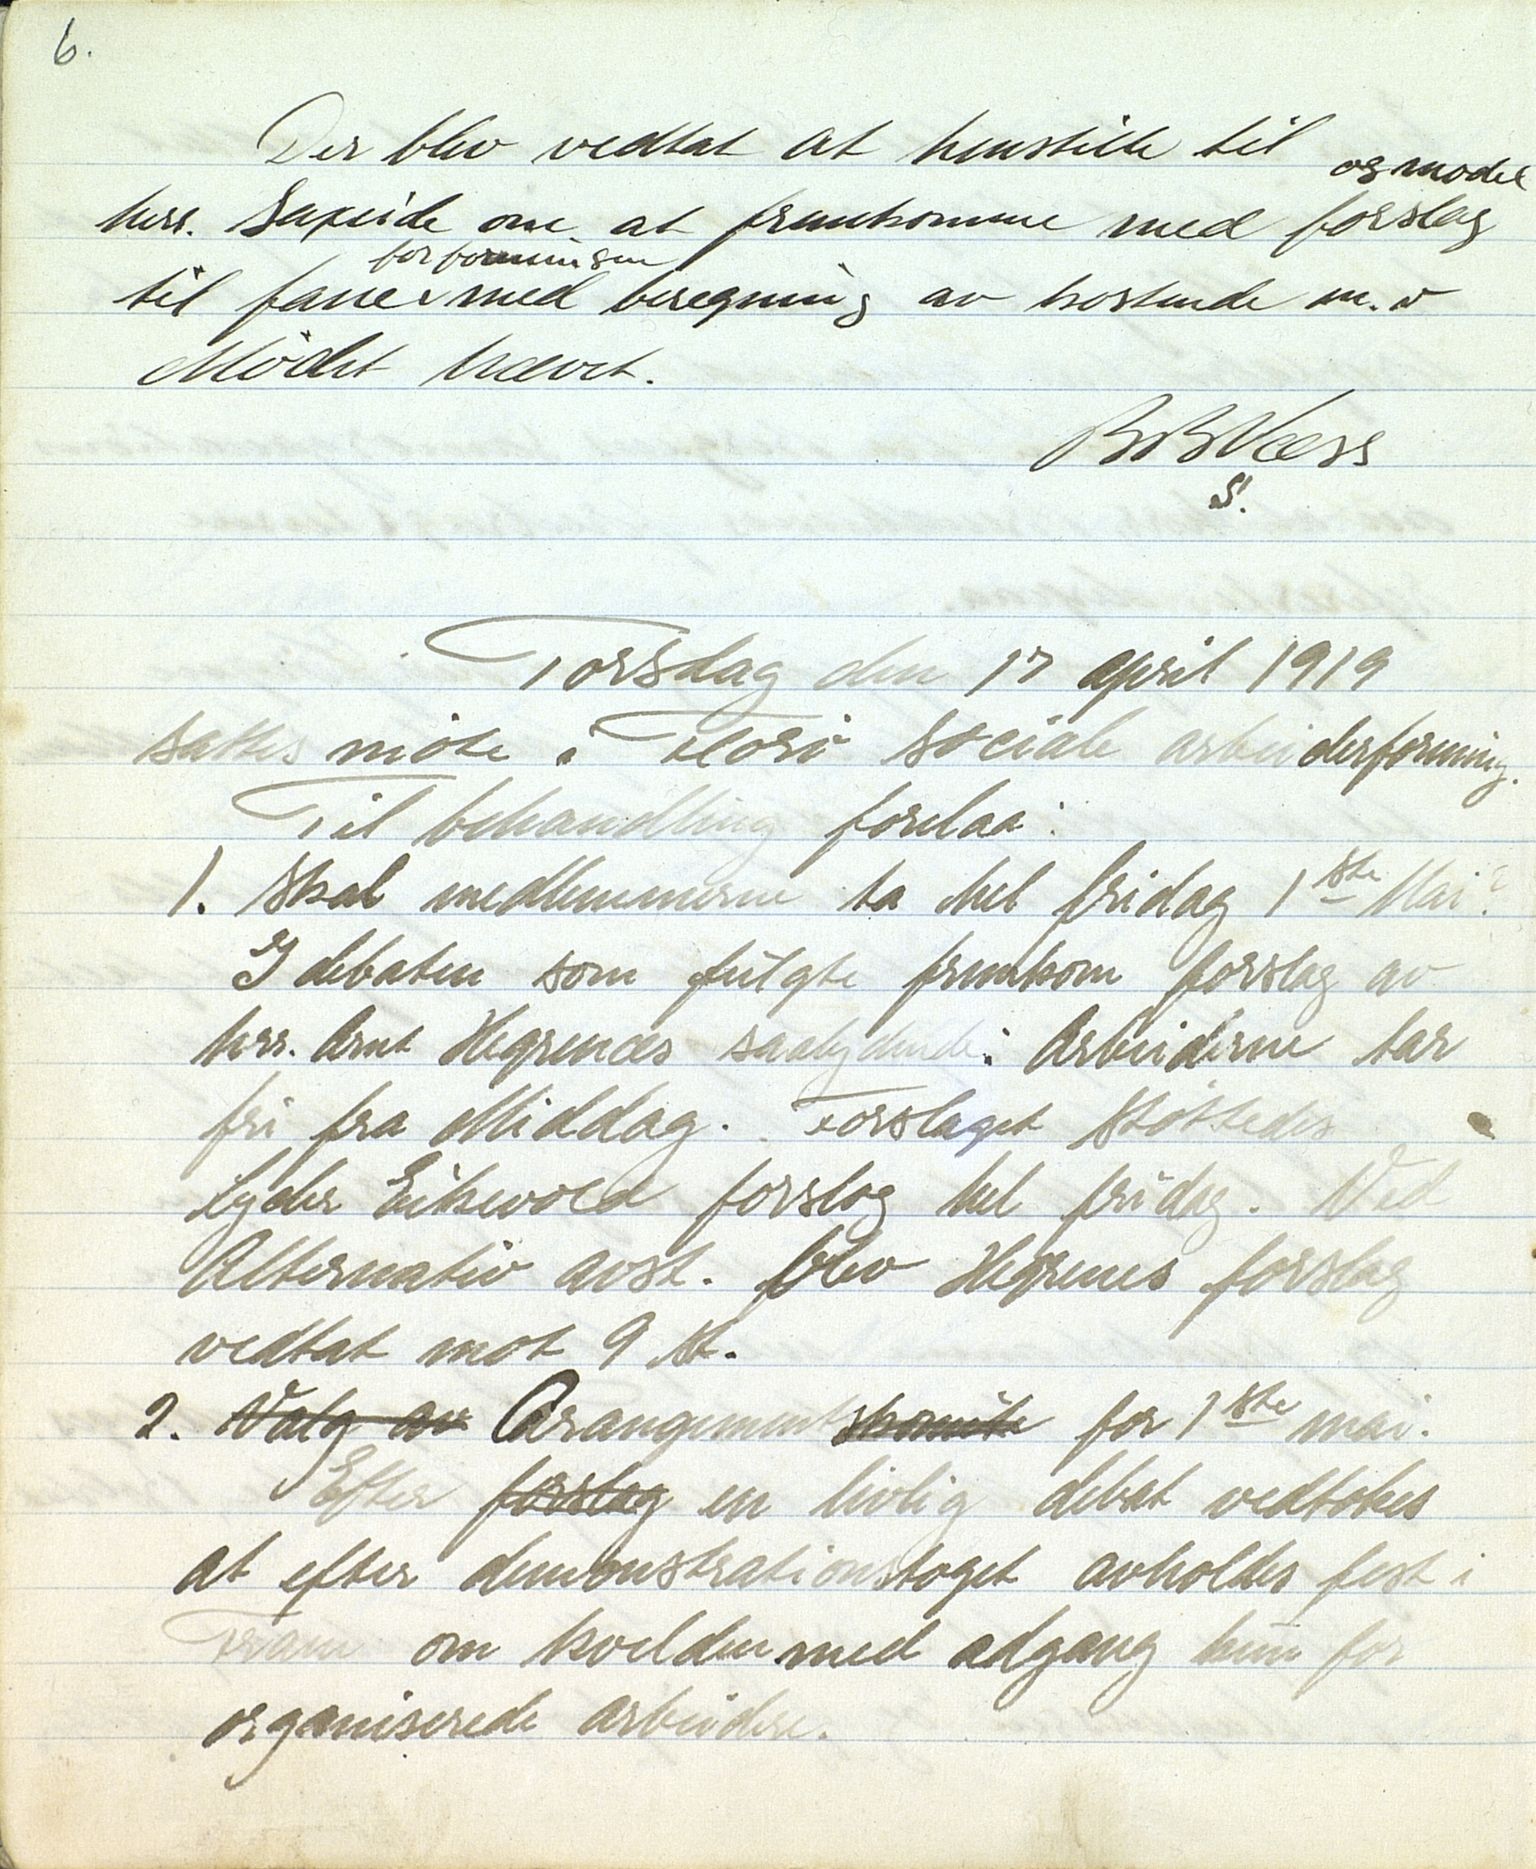 6.
Der blev vedtat at henstille til
og model
herr. Saxeide om at fremkomme med forslag
for foreningen
til fane med beregning av kostende m.v
Mødet hævet.
BBNæss
S.
Torsdag den 17 april 1919
sattes møte i Florø sociale arbeiderforening.
Til behandling forelaa:
1. Skal medlemmerne ta hel fridag 1ste Mai?
I debaten som fulgte fremkom forslag av
herr. Arnt Hegrenæs saalydende: Arbeiderne tar
fri fra Middag. Forslaget støttedes
Lyder Eikevold forslog hel fridag. Ved
Alternativ avst. blev Hegrenes forslag
vedtat mot 9 st.
2. Valg av Arangementskomite for 1ste mai.
Efter forslag en livlig debat vedtokes
at efter demonstrationstoget avholdes fest i
Fram om kvelden med adgang kun for
organiserede arbeidere.